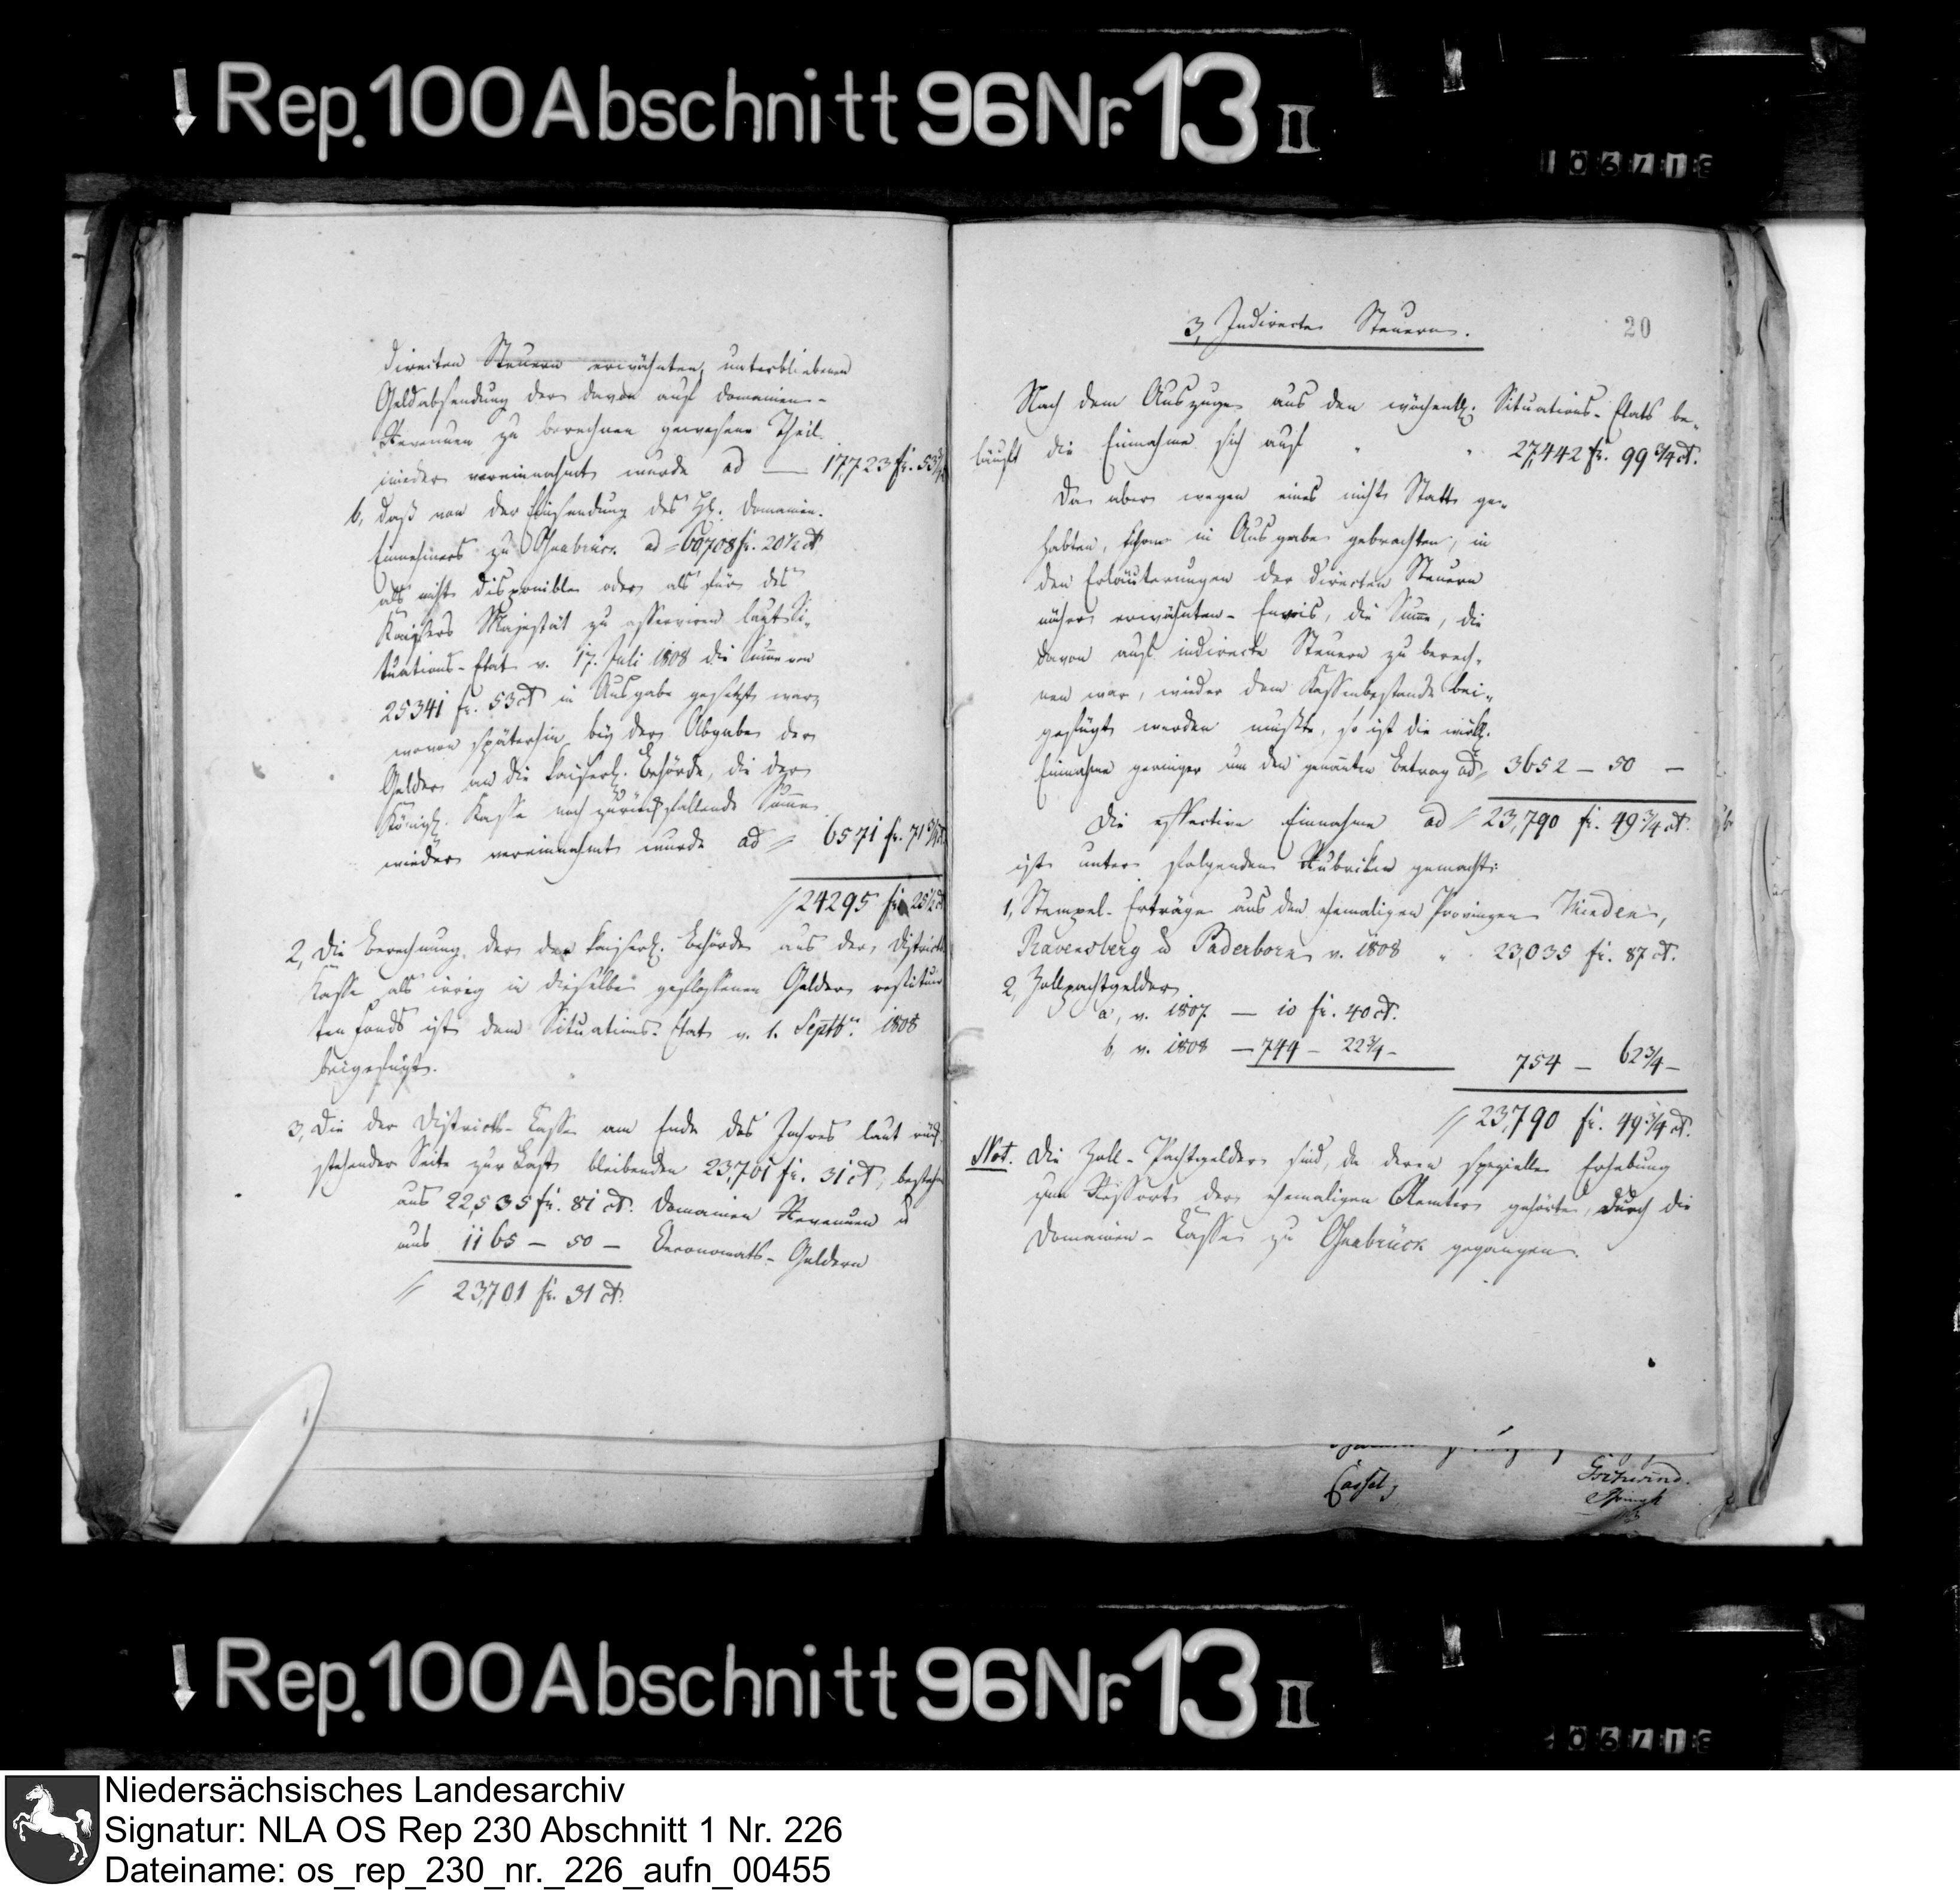 Rep. 100 Abschnitt 96 Nr. 13 II
directen Steuern erwähnten, unterbliebenen
Geldabsendung der davon auf Domainen-
Revenuen zu berechnen gewesene Theil
wieder vereinnahmt wurde ad — 17,723 fr. 53¾
b, daß von der Einsendung des H. Domainen-
Einnehmers zu Osnabrück ad = 60,708 fr. 20½ ct
als nicht disponible oder als für des
Kaysers Majestät zu asserviren laut Si-
tuations-Etat v. 17. Juli 1808 die Summe von
25341 fr. 53 ct in Ausgabe gesetzt war,
wovon späterhin bey der Abgabe der
Gelder an die kayserl. Behörde, die der
Königl. Kasse noch zurückfallende Summe
wieder vereinnahmt wurde ad = 6571 fr. 71¾ ct
// 24295 fr. 25½ ct
2, Die Berechnung der der kayserl. Behörde aus der Districts-
Kasse als irrig in dieselbe geflossenen Gelder restituir-
ten Fonds ist dem Situations-Etat v. 1. Septbr. 1808
beigefügt.
3, Die der Districts-Casse am Ende des Jahres laut rück-
stehender Seite zur Last bleibenden 23,701 fr. 31 ct, bestehen
aus 22,535 fr. 81 ct. Domainen Revenuen u
aus 1165 — 50 — Oeconomats-Geldern
// 23,701 fr. 31 ct.
20
3, Indirecte Steuern.
Nach dem Auszuge aus den wöchentl. Situations-Etats be-
läuft die Einnahme sich auf " " 27,442 fr. 99¾ ct.
Da aber wegen eines nicht Statt ge-
habten, schon in Ausgabe gebrachten, in
den Erläuterungen der directen Steuern
näher erwähnten Envois, die Summe, die
davon auf indirecte Steuern zu berech-
nen war, wieder dem Kassenbestande bei-
gefügt werden mußte, so ist die wirkl.
Einnahme geringer um den genannten Betrag ad = 3652 — 50 —
Die effective Einnahme ad // 23,790 fr. 49¾ ct.
ist unter folgenden Rubriken gemacht:
1, Stempel-Erträge aus den ehemaligen Provinzen Minden,
Ravensberg u Paderborn v. 1808 " 23,035 fr. 87 ct.
2, Zollpachtgelder
a, v. 1807 — 10 fr. 40 ct.
b, v. 1808 — 744 — 22¾ —
754 — 62¾ —
// 23,790 fr. 49¾ ct.
Not. Die Zoll-Pachtgelder sind, da deren spezielle Erhebung
zum Ressort der ehemaligen Aemter gehörte, durch die
Domainen-Casse zu Osnabrück gegangen.
Cassel,
Rep. 100 Abschnitt 96 Nr. 13 II
Niedersächsisches Landesarchiv
Signatur: NLA OS Rep 230 Abschnitt 1 Nr. 226
Dateiname: os_rep_230_nr._226_aufn_00455